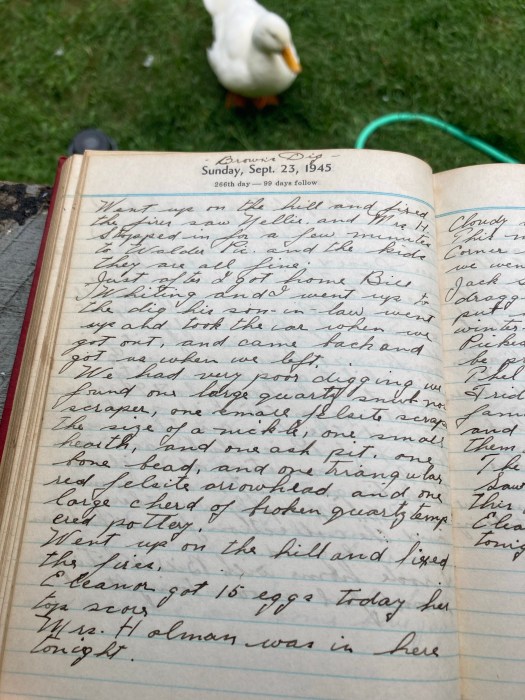 - Browns Dig -
Sunday, Sept. 23, 1945
266th day — 99 days follow
Went up on the hill and fixed
the fires saw Nellie and Mrs H.
stopped in for a few minutes
to Walder Pic and the kids
they are all fine.
Just after I got home Bill
Whiting and I went up to
the dig his son-in-law went
up ahd took the car when we
got out, and came back and
got us when we left.
We had very poor digging we
found one large quartz snub no
scraper, one small felsite scrap
the size of a nickle, one small
hearth, and one ash pit, one
bone bead, and one triangular
red felsite arrowhead and one
large cherd of broken quartz temp
ered pottery.
Went up on the hill and fixed
the fires.
Eleanor got 15 eggs today her
top score
Mrs. Holman was in here
tonight.
Cloudy
This m
Corner
we wen
Jack
dragg
put
winter
Picked
be p
Phel
Frid
fam
and
them
I fe
saw
this
Elea
tonig